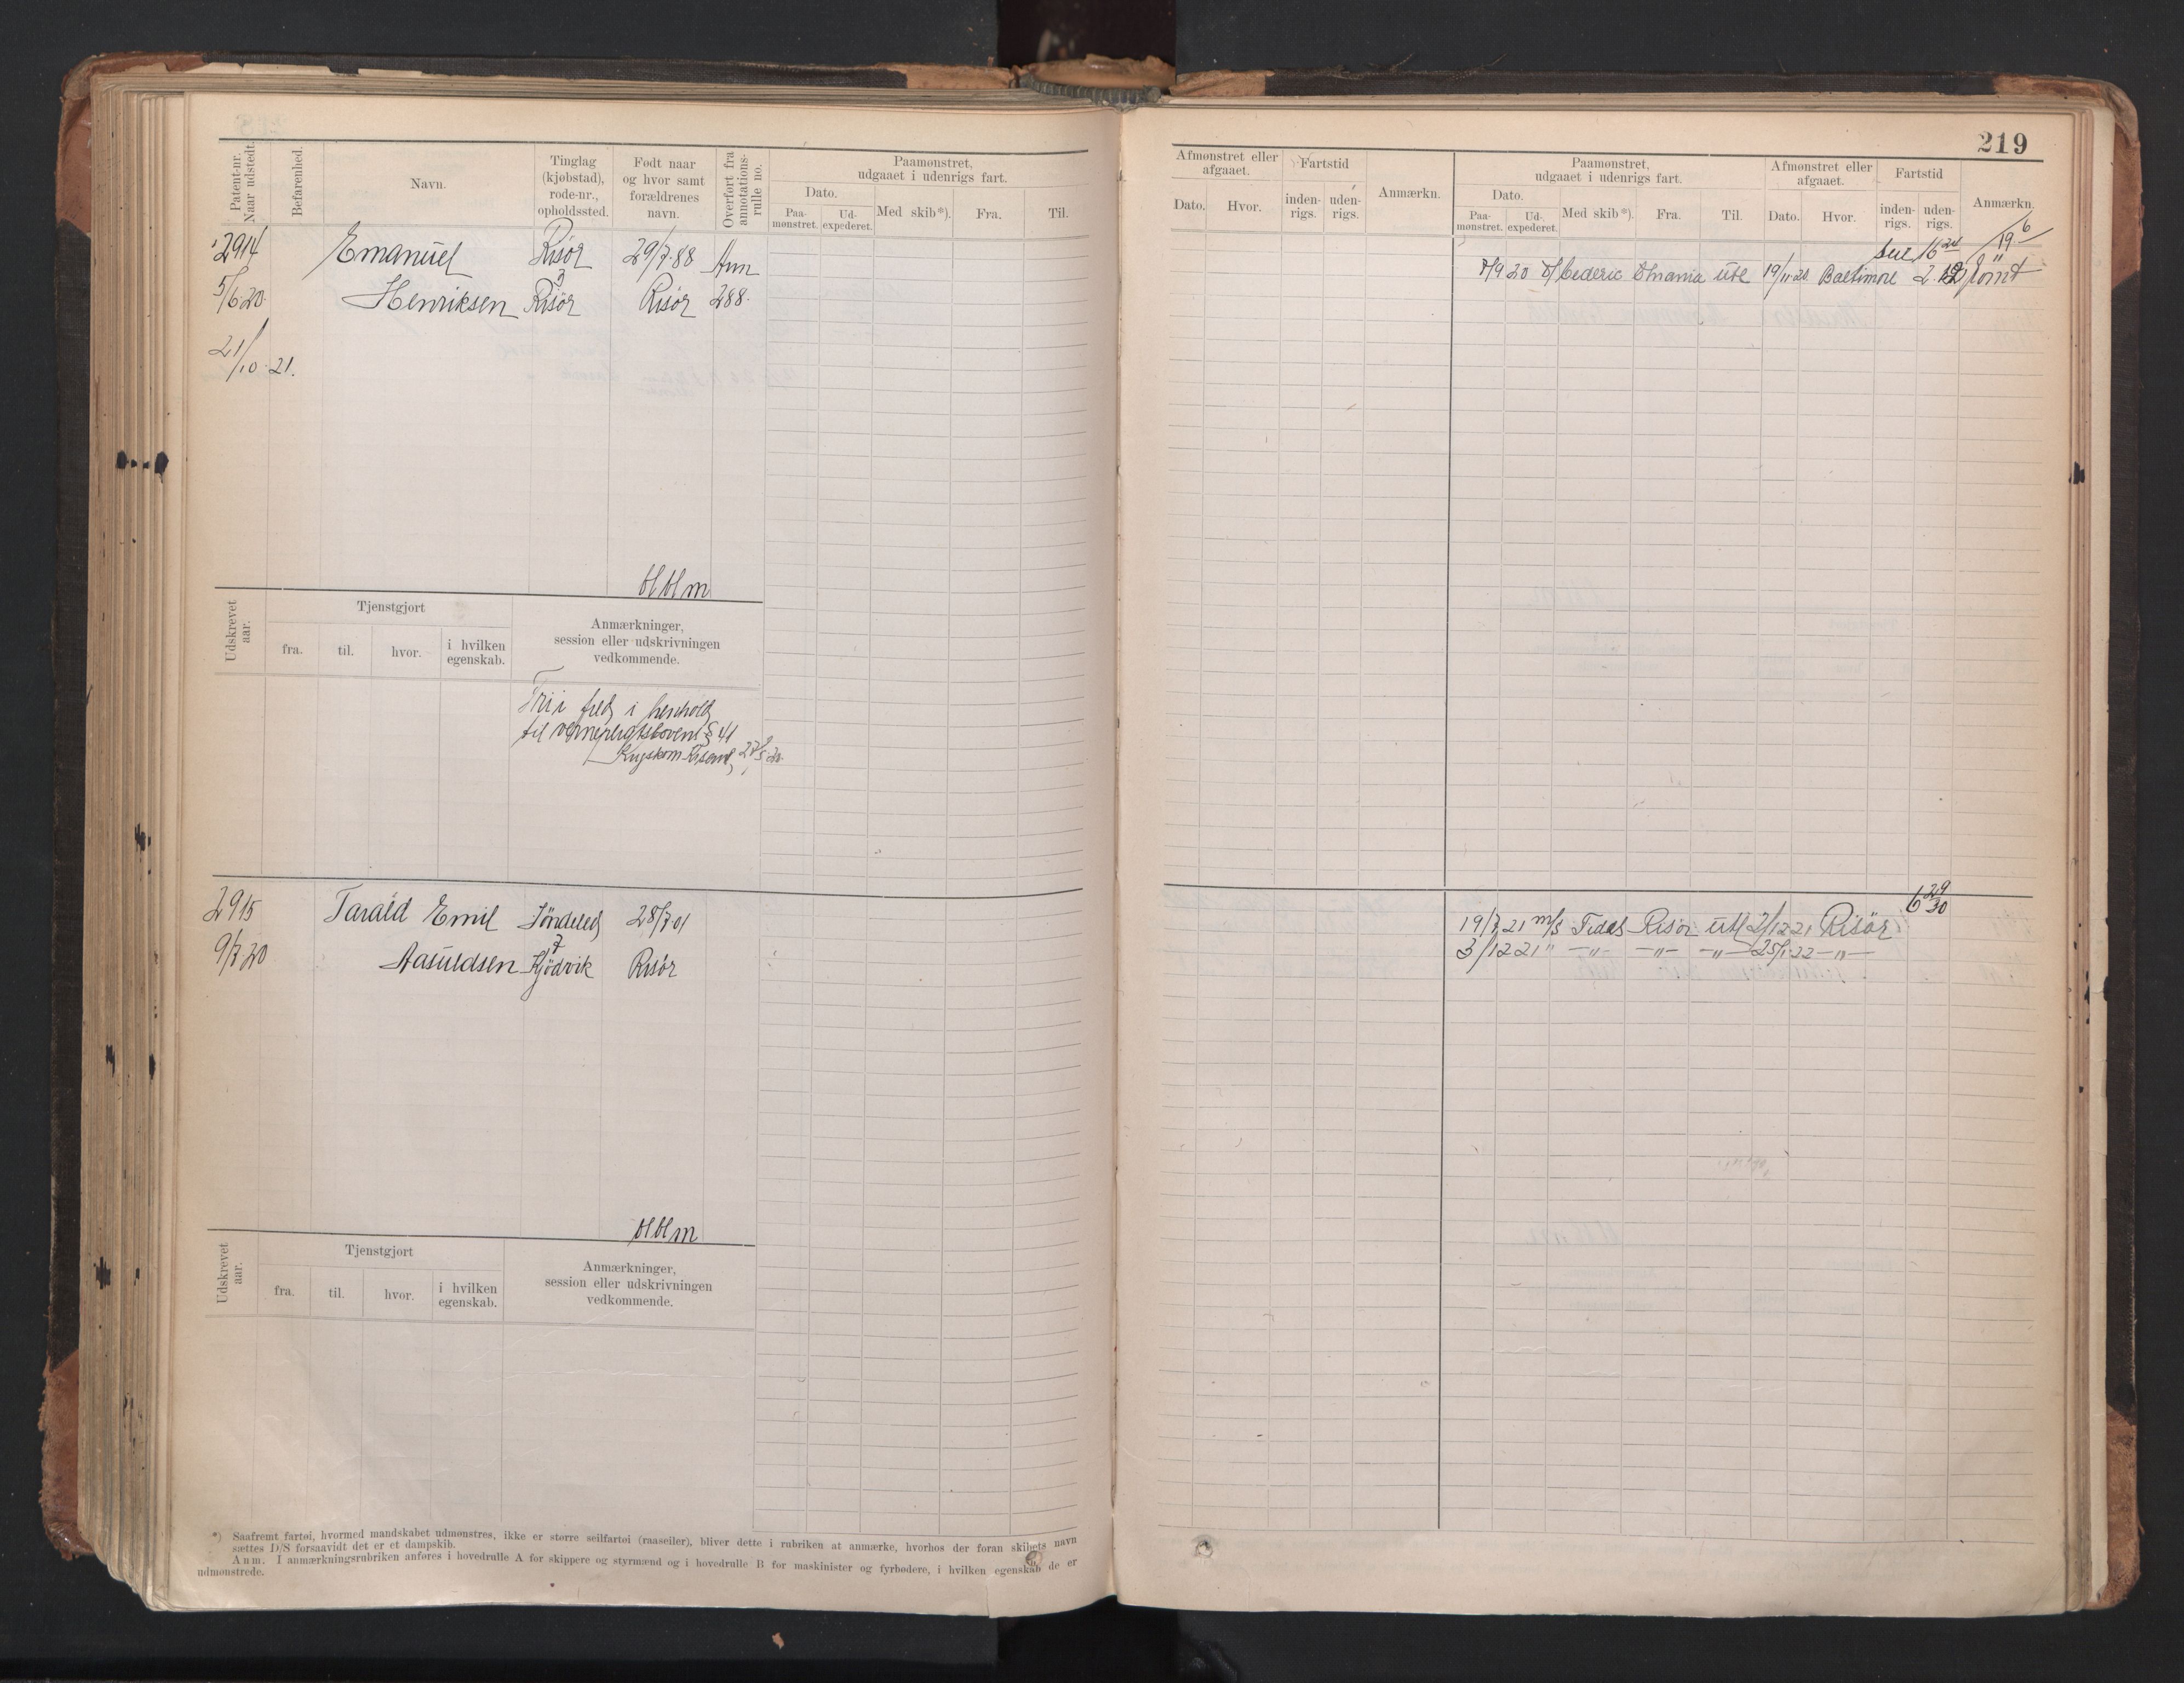 219
Patent-nr.
Naar udstedt.
Befarenhed.
Navn.
Tinglag
(kjøbstad),
rode-nr.,
opholdssted.
Født naar
og hvor samt
forældrenes
navn.
Overført fra
annotations-
rulle no.
Paamønstret,
udgaaet i udenrigs fart.
Dato.
Paa-
mønstret.
Ud-
expederet.
Med skib*).
Fra.
Til.
Afmønstret eller
afgaaet.
Dato.
Hvor.
Fartstid
inden-
rigs.
uden-
rigs.
Anmærkn.
Paamønstret,
udgaaet i udenrigs fart.
Dato.
Paa-
mønstret.
Ud-
expederet.
Med skib*).
Fra.
Til.
Afmønstret eller
afgaaet.
Dato.
Hvor.
Fartstid
inden-
rigs.
uden-
rigs.
Anmærkn.
2914
Emanuel
Risør
29/7.88
Ann
5/6 20.
Henriksen
3
Risør
Risør
288.
21/10.21.
16 24
19 6
8/9 20
utl
19/11 20
Baltimore
Udskrevet
aar.
Tjenstgjort
fra.
til.
hvor.
i hvilken
egenskab.
Anmærkninger,
session eller udskrivningen
vedkommende.
i henhold
til vernepligtslovens § 41
2915
Tarald Emil
Søndeled
28/7.01
9/7 20
Aasuldsen
7
Kjødvik
Risør
6 29/30
19/7 21 m/s
Risør
utl
2/12 21
Risør
3/12 21 " —„— —„— —„— 25/1.22 —„—
Udskrevet
aar.
Tjenstgjort
fra.
til.
hvor.
i hvilken
egenskab.
Anmærkninger,
session eller udskrivningen
vedkommende.
*) Saafremt fartøi, hvormed mandskabet udmønstres, ikke er større seilfartøi (raaseiler), bliver dette i rubriken at anmærke, hvorhos der foran skibets navn
sættes D/S forsaavidt det er et dampskib.
Anm. I anmærkningsrubriken anføres i hovedrulle A for skippere og styrmænd og i hovedrulle B for maskinister og fyrbødere, i hvilken egenskab de er
udmønstrede.